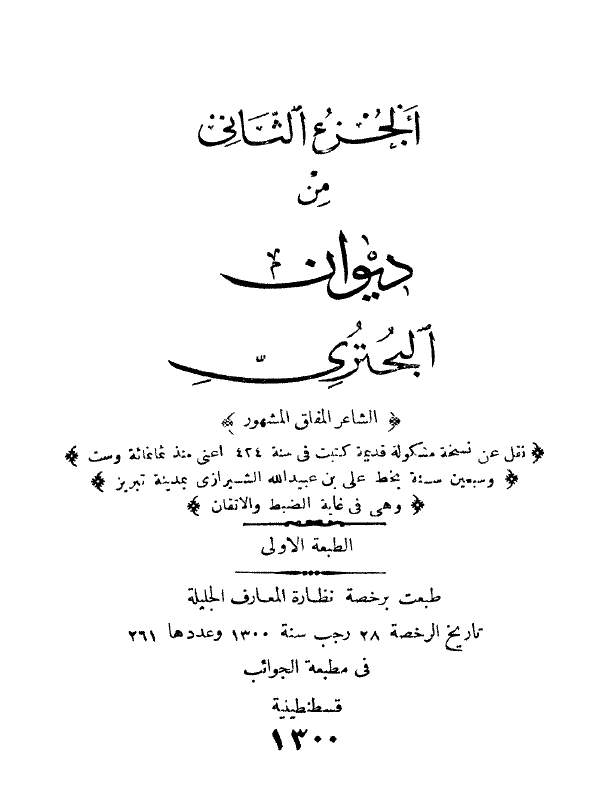 اَلْجُزءُ اَلثَّانِى
مِنْ
دِيْوان
اَلْبُحْتُرِىِّ
﴿ الشاعر المفلق المشهور ﴾
﴿ نقل عن نسخة مشكولة قديمة كتبت فى سنة ٤٢٤ اعنى منذ ثمانمائة وست ﴾
﴿ وسبعين سنة بخط على بن عبيدالله الشيرازى بمدينة تبريز ﴾
﴿ وهى فى غاية الضبط والاتقان ﴾
الطبعة الاولى
طبعت برخصة نظارة المعارف الجليلة
تاريخ الرخصة ٢٨ رجب سنة ١٣٠٠ وعددها ٢٦١
فى مطبعة الجوائب
قسطنطينية
١٣٠٠